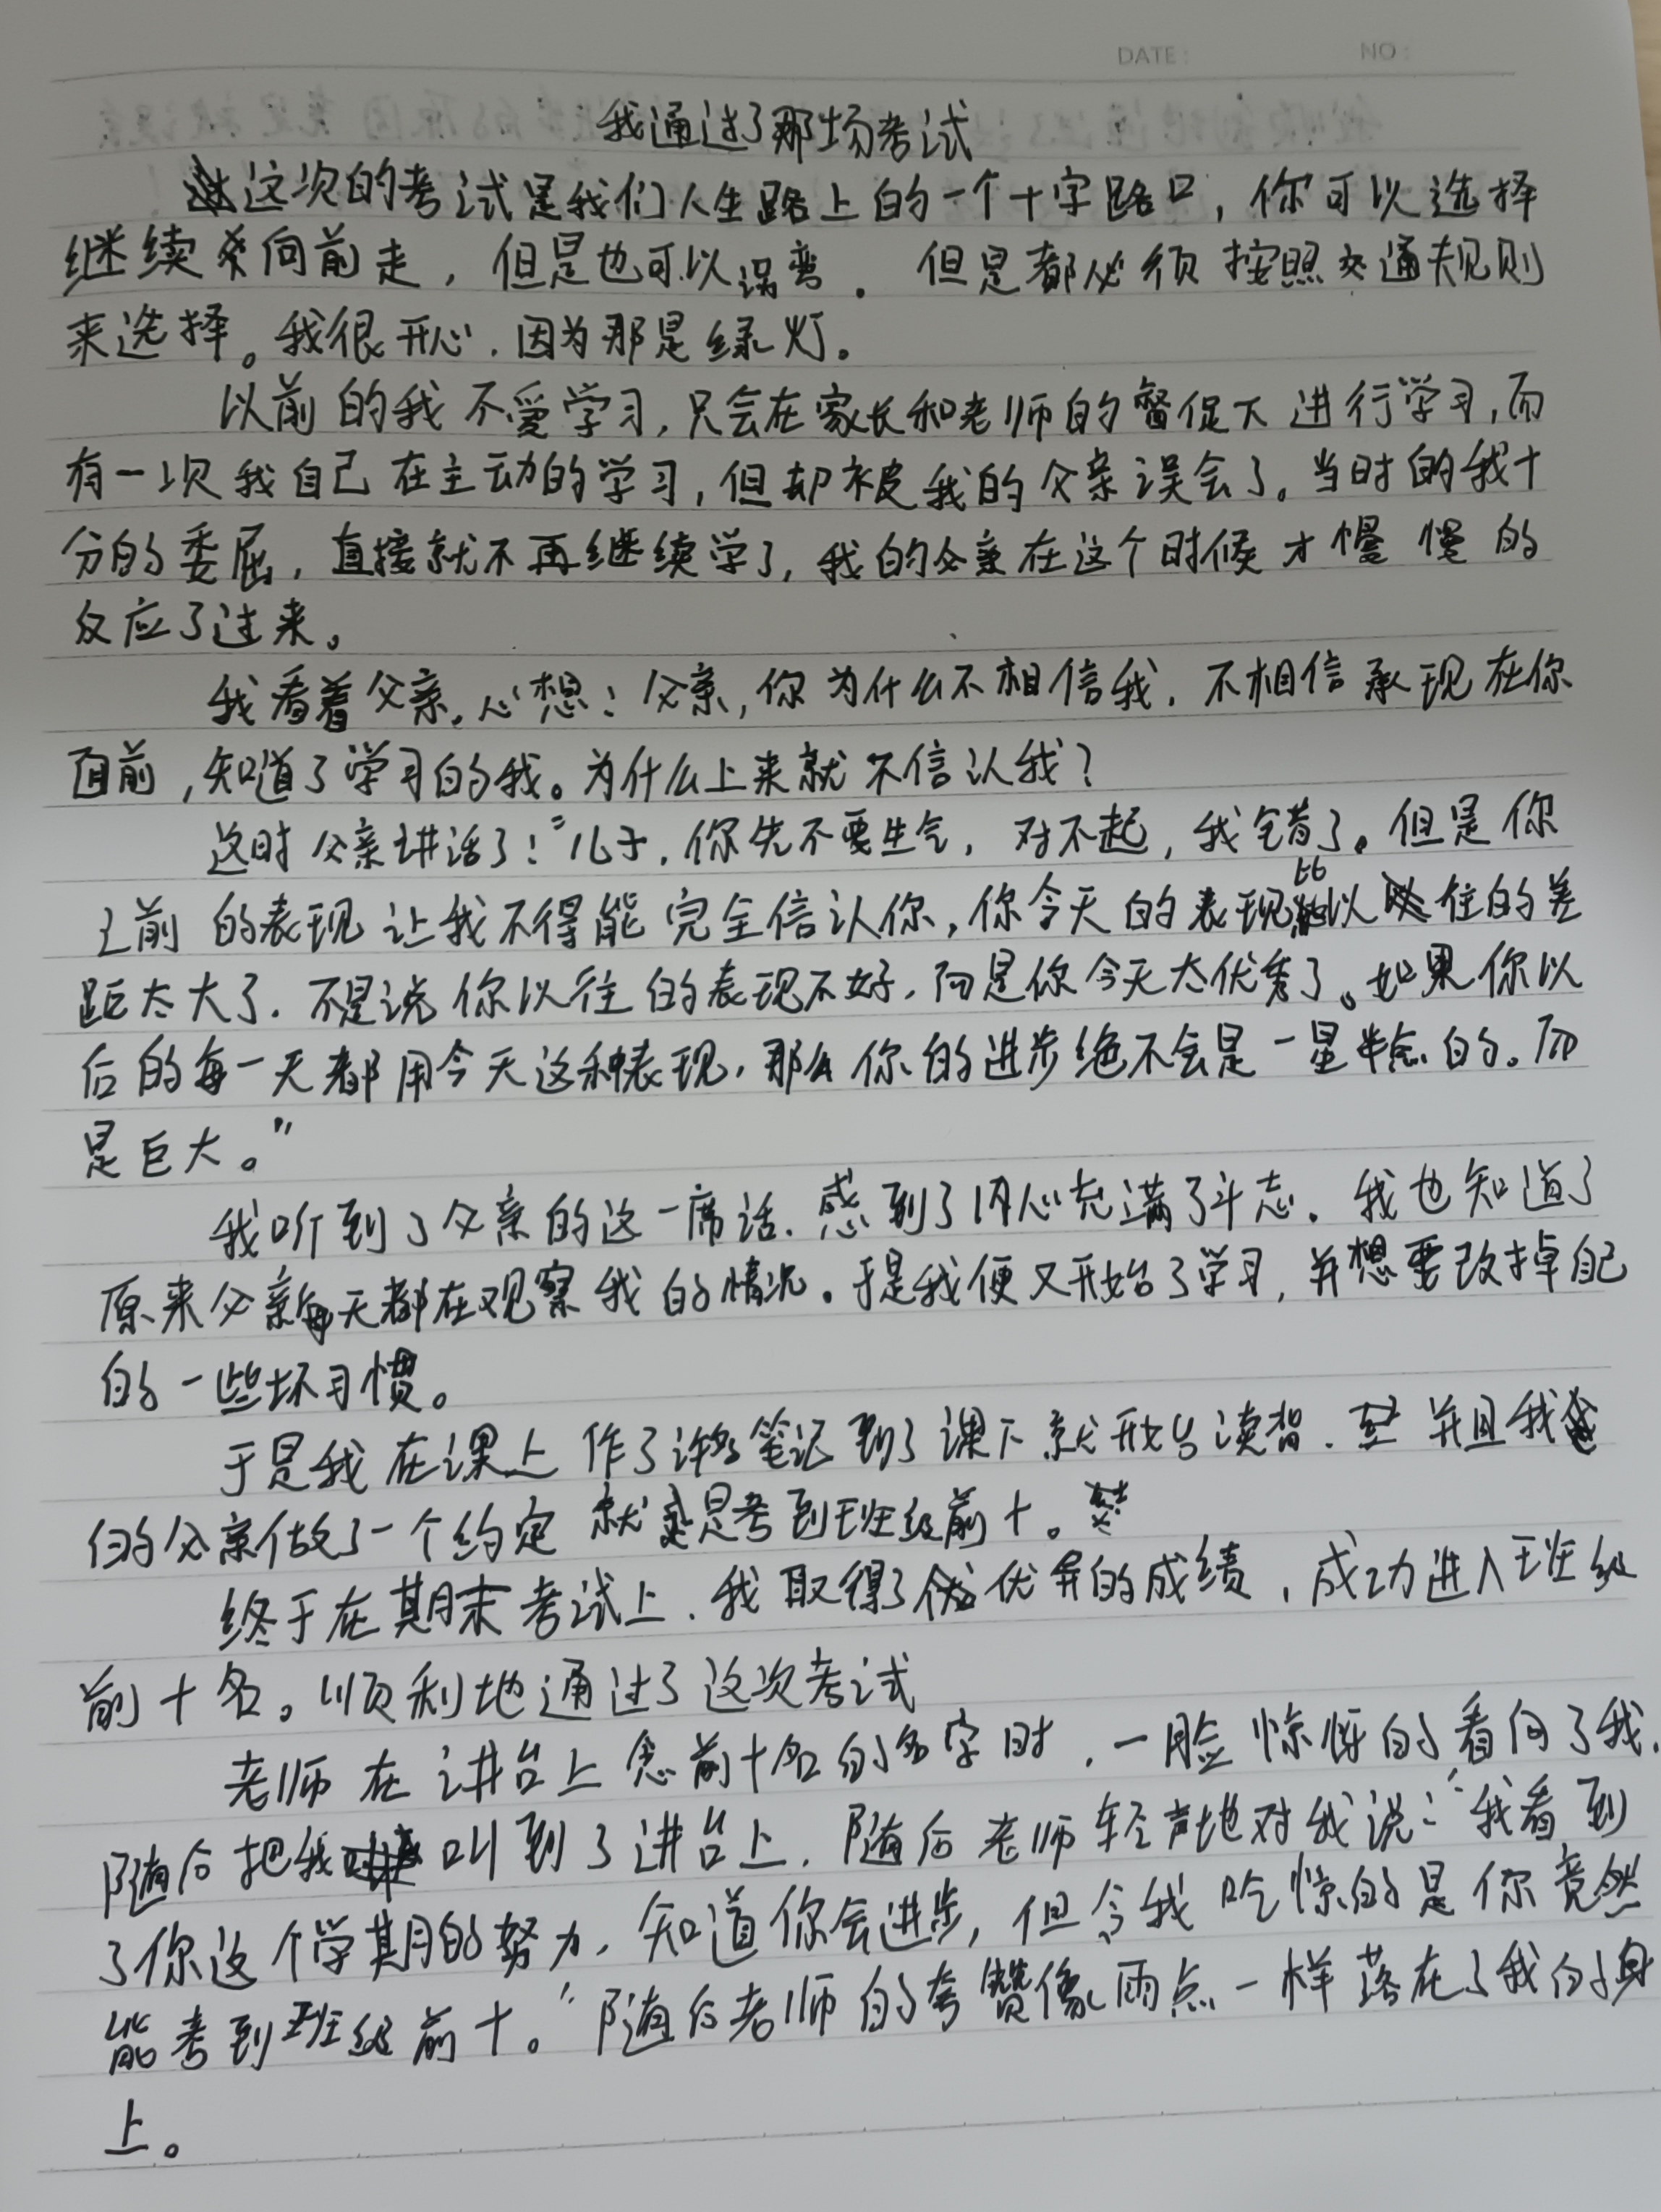 DATE: NO:
我通过了那场考试
这次的考试是我们人生路上的一个十字路口，你可以选择
继续向前走，但是也可以误弯。但是都必须按照交通规则
来选择。我很开心.因为那是绿灯。
以前的我不爱学习,只会在家长和老师的督促下进行学习,而
有一次我自己在主动的学习,但却被我的父亲误会了。当时的我十
分的委屈，直接就不再继续学了,我的父亲在这个时候才慢慢的
反应了过来。
我看着父亲.心想：父亲,你为什么不相信我.不相信 现在你
面前,知道了学习的我。为什么上来就不信认我？
这时父亲讲话了：“儿子.你先不要生气,对不起,我错了。但是你
之前的表现让我不得能完全信认你,你今天的表现比以往的差
距太大了.不是说你以往的表现不好.而是你今天太优秀了。如果你以
后的每一天都用今天这种表现.那么你的进步绝不会是一星半点的。而
是巨大。”
我听到了父亲的这一席话.感到了内心充满了斗志。我也知道了
原来父亲每天都在观察我的情况。于是我便又开始了学习,并想要改掉自己
的一些坏习惯。
于是我在课上作了详细笔记到了课下就开始读背.并且我
的父亲做了一个约定就是考到班级前十。
终于在期末考试上.我取得了优异的成绩,成功进入班级
前十名。顺利地通过了这次考试
老师在讲台上念前十名的名字时,一脸惊讶的看向了我.
随后把我叫到了讲台上.随后老师轻声地对我说：“我看到
了你这个学期的努力.知道你会进步,但令我吃惊的是你竟然
能考到班级前十。”随后老师的夸赞像雨点一样落在了我的身
上。